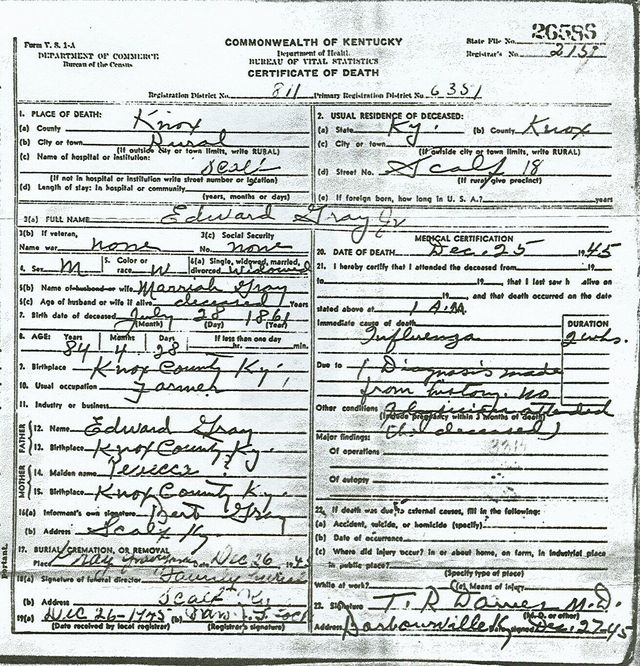 Form V. S. 1-A
DEPARTMENT OF COMMERCE
Bureau of the Census
COMMONWEALTH OF KENTUCKY
Department of Health
BUREAU OF VITAL STATISTICS
CERTIFICATE OF DEATH
State File No. 26586
Registrar's No. 2159
Registration District No. 811 Primary Registration District No. 6351
1. PLACE OF DEATH:
(a) County Knox
(b) City or town Rural
(If outside city or town limits, write RURAL)
(c) Name of hospital or institution:
Scalf
(If not in hospital or institution write street number or location)
(d) Length of stay: In hospital or community
(years, months or days)
2. USUAL RESIDENCE OF DECEASED:
(a) State Ky. (b) County Knox
(c) City or town
(If outside city or town limits, write RURAL)
(d) Street No. Scalf 18
(If rural give precinct)
(e) If foreign born, how long in U. S. A.? years
3(a) FULL NAME Edward Gray Jr
3(b) If veteran,
Name war none
3(c) Social Security
No. none
4. Sex M
5. Color or
race W
6(a) Single, widowed, married,
divorced Widowed
6(b) Name of husband or wife Marriah Gray
6(c) Age of husband or wife if alive deceased Years
7. Birth date of deceased July 28 1861
(Month) (Day) (Year)
8. AGE: Years Months Days If less than one day
84 4 28 hr. min.
9. Birthplace Knox County Ky.
10. Usual occupation Farmer
11. Industry or business
FATHER
12. Name Edward Gray
13. Birthplace Knox County Ky.
MOTHER
14. Maiden name ?
15. Birthplace Knox County Ky.
16(a) Informant's own signature Bert Gray
(b) Address Scalf Ky
17. BURIAL, CREMATION, OR REMOVAL
Place Gray Date Dec 26 1945
18(a) Signature of funeral director
(b) Address Scalf Ky.
19(a) DEC 26-1945 (b)
(Date received by local registrar) (Registrar's signature)
MEDICAL CERTIFICATION
20. DATE OF DEATH Dec. 25 1945
21. I hereby certify that I attended the deceased from 19
, 19 , to , that I last saw h alive on
, 19 , and that death occurred on the date
stated above at 1 A.M.
Immediate cause of death
Influenza
DURATION
2 wks.
Due to (Diagnosis made
from history. no
Other conditions physician attended
(Include pregnancy within 3 months of death)
the deceased)
Major findings:
Of operations
Of autopsy
22. If death was due to external causes, fill in the following:
(a) Accident, suicide, or homicide (specify)
(b) Date of occurrence
(c) Where did injury occur? in or about home, on farm, in industrial place
in public place?
(Specify type of place)
While at work? (e) Means of injury
23. Signature T. R. Davies M.D.
(M. D. or other)
Address Barbourville Ky Date signed Dec. 27-45